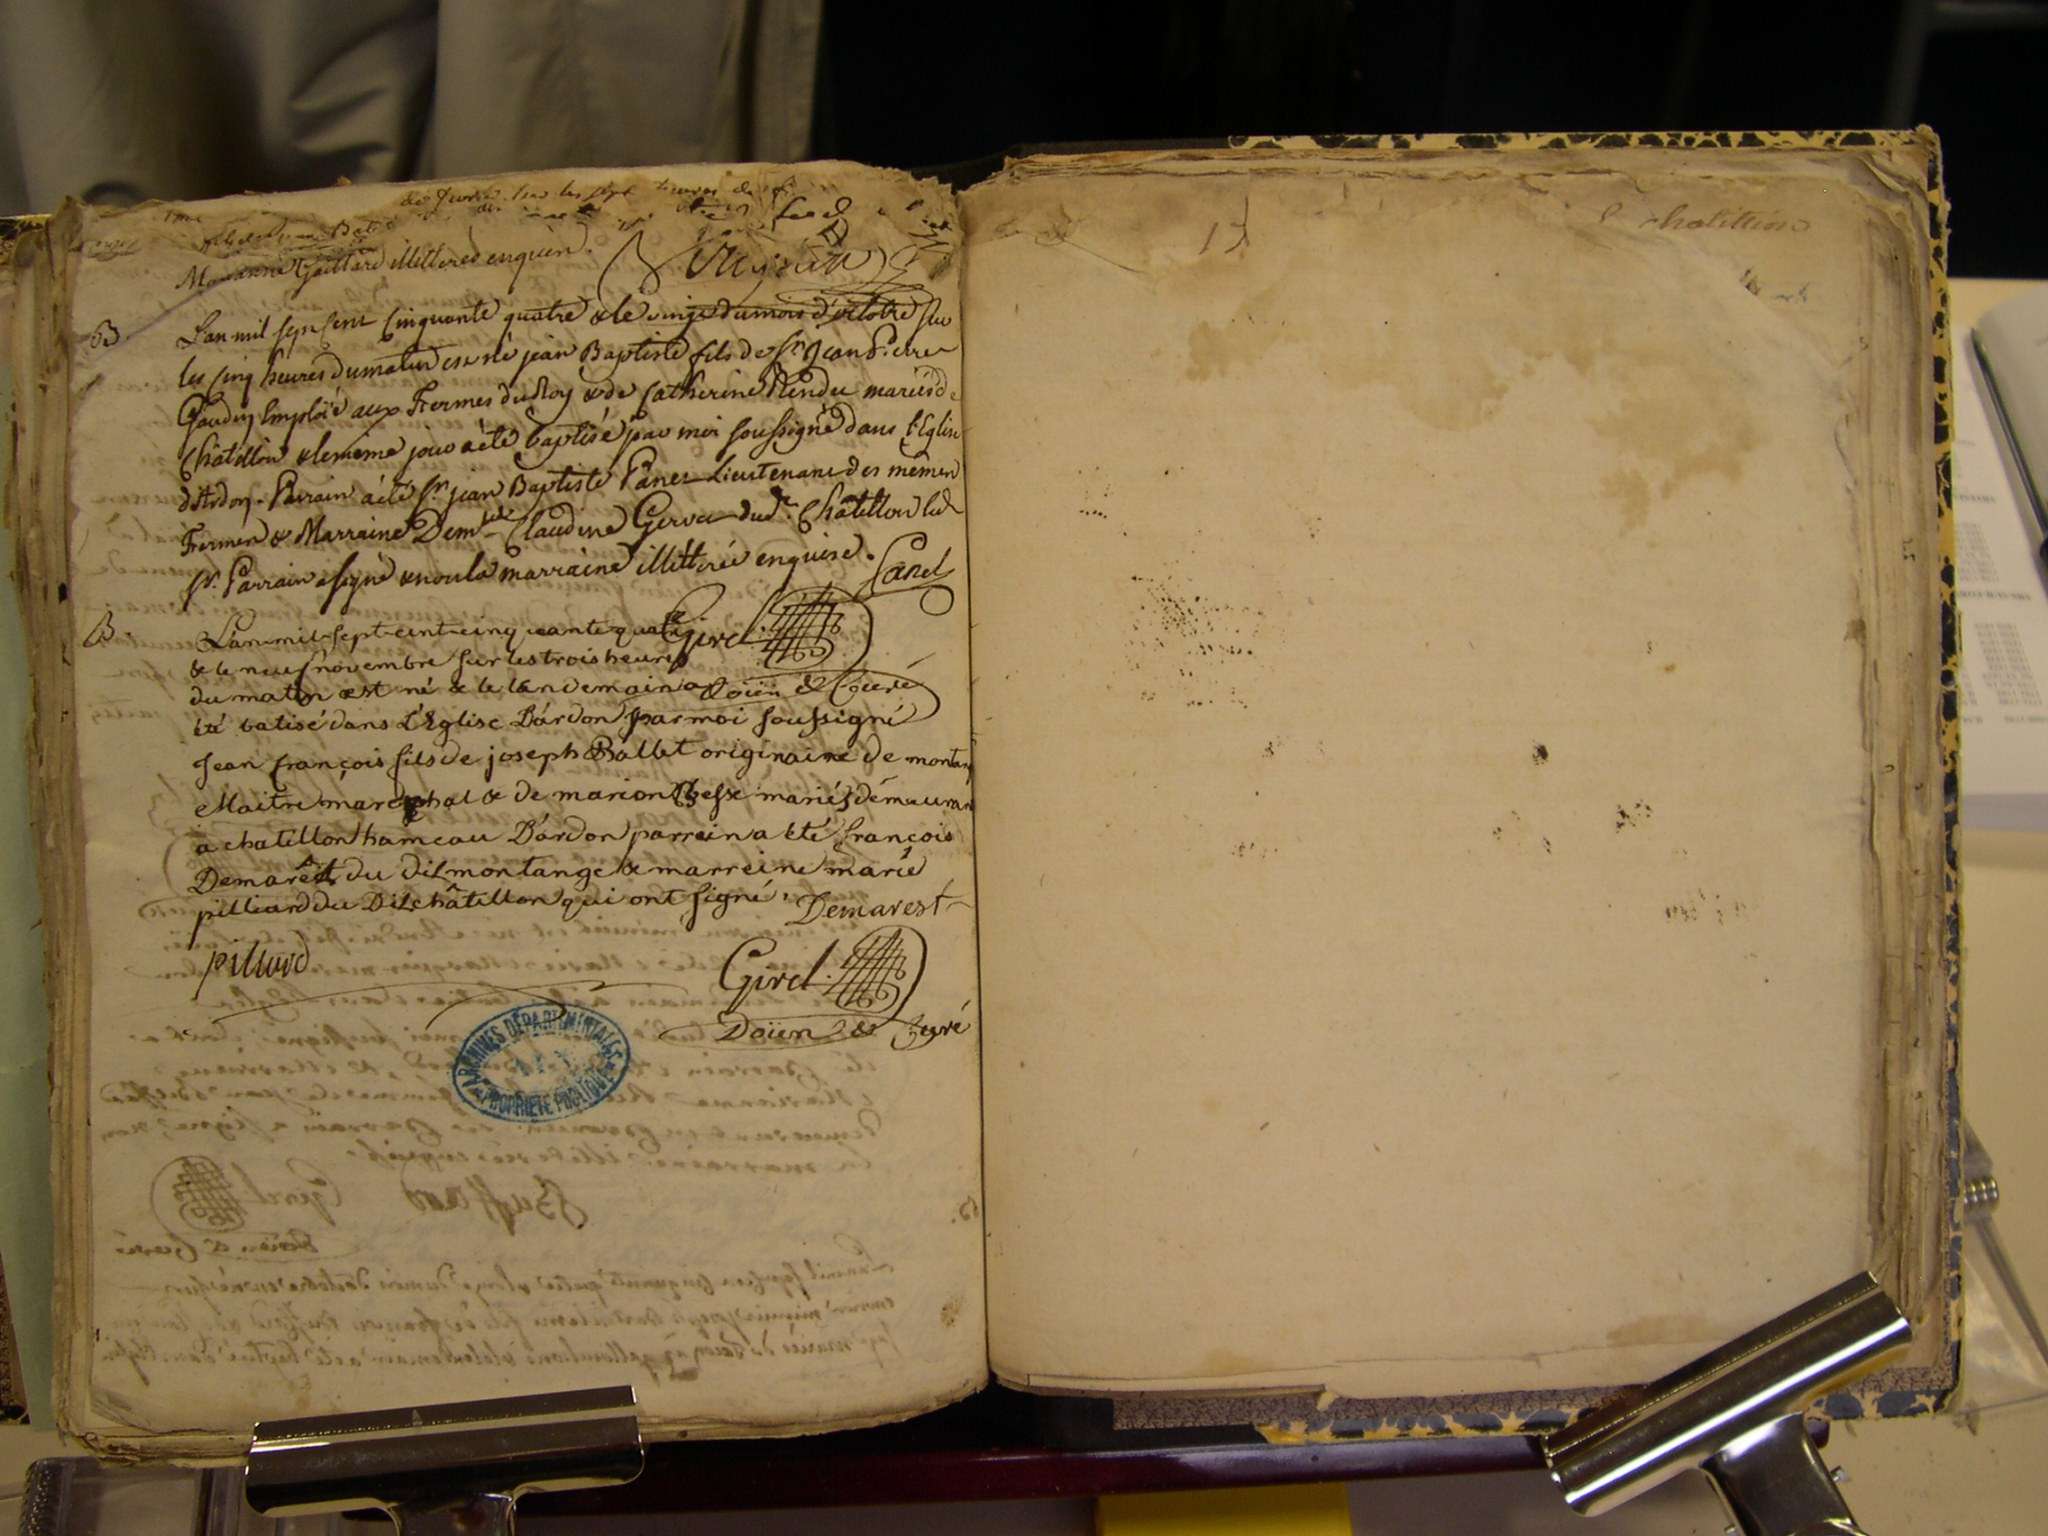 de sur les sept heures du
Marianne Gaillard illitered enquien.
B L'an mil sept cent Cinquante quatre & le vingt du mois d'octobre sur
les cinq heures du matin est né jean Baptiste fils de Sr. Jean Pierre
Gaudin Emploié aux Fermes du Roy & de Catherine Rendu mariés de
Châtillon & le même jour a été baptisé par moi soussigné dans l'Eglise
d'Ardon. Parrain a été Sr. jean Baptiste Panet Lieutenant des mêmes
Fermes & Marraine Demlle Claudine Gervas dud. Châtillon led.
Sr. Parrain a signé & nonla marraine illitterée enquise. Panet
B. L'an mil sept cent cinquante quatre Girel
& le neuf novembre sur les trois heures
du matin est né & le lendemain a Doïen & Curé
été batisé dans L'Eglise D'ardon par moi soussigné
Jean françois fils de joseph Ballet originaire de montang
Maitre marechal & de marion mariés démeurán
a chatillon hameau D'ardon parrein a été françois
Demarêt du dit montange & marreine marie
pilliard du Dit châtillon qui ont signé. Demarest
pilliard
Girel.
Doïen & Curé
ARCHIVES DÉPARTEMENTALES
AIN
PROPRIÉTÉ PUBLIQUE
17
chatillion